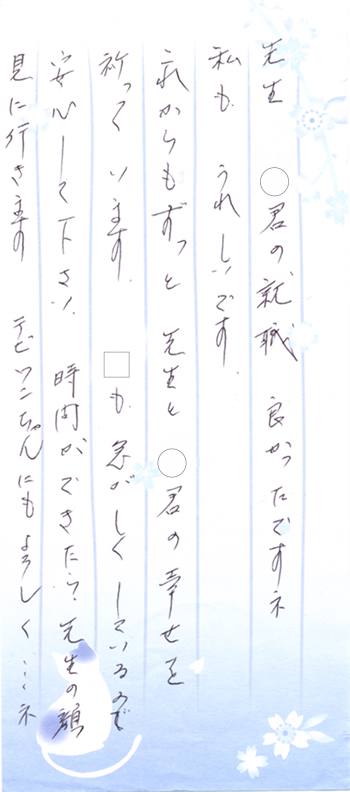 先生 ○君の就職 良かったですネ
私も うれしいです。
これからもずっと 先生と ○君の幸せを
祈って います。 □も 急がしくしているので
安心して下さい。 時間ができたら、先生の顔
見に行きます デビンちゃんにもよろしく…ネ